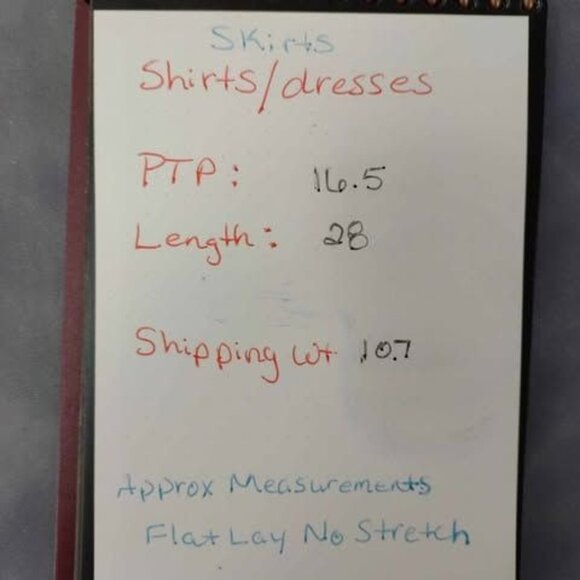 Skirts
Shirts/dresses
PTP: 16.5
Length: 28
Shipping wt 10.7
Approx Measurements
Flat Lay No Stretch